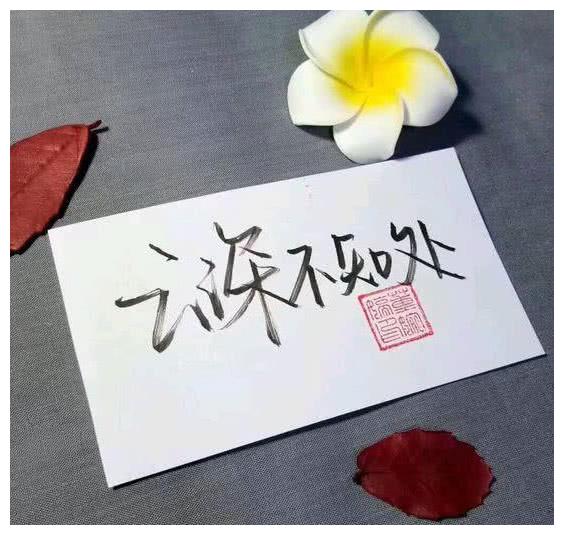 云深不知处